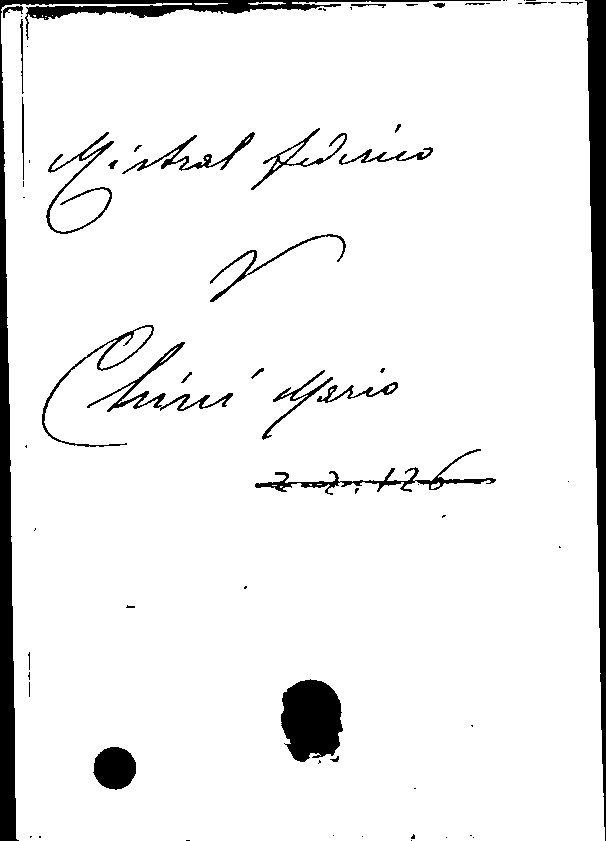 Mistral Federico
V
Chini Mario
2 2. 126